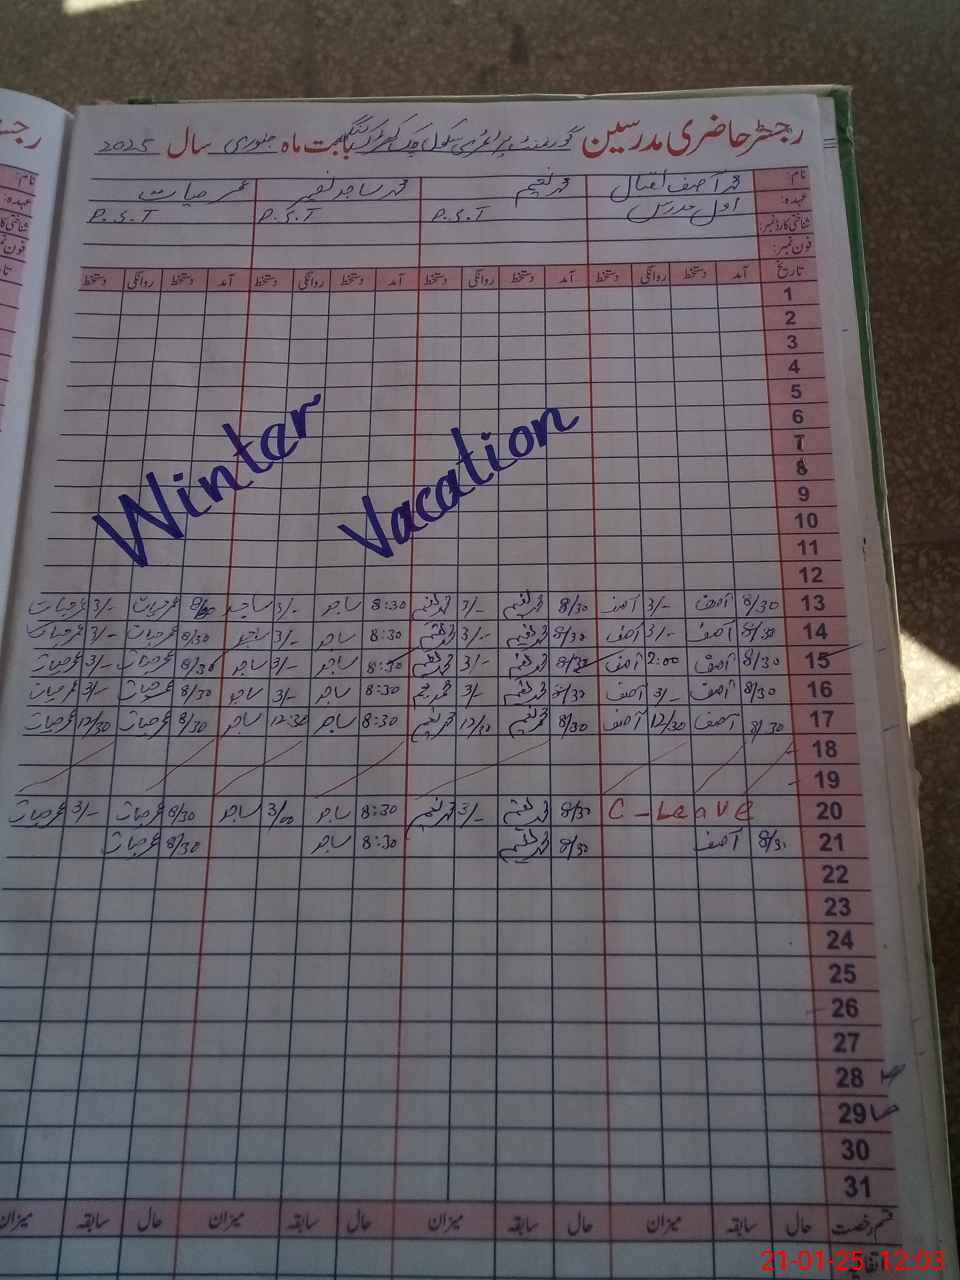 رجسٹر حاضری مدرسین گورنمنٹ پرائمری سکول بابت ماہ جنوری سال 2025
نام: محمد آصف اقبال محمد نعیم محمد ساجد نصیر عمر حیات
عہدہ: اول مدرس P.S.T P.S.T P.S.T
شناختی کارڈ نمبر:
فون نمبر:
تاریخ آمد دستخط روانگی دستخط آمد دستخط روانگی دستخط آمد دستخط روانگی دستخط آمد دستخط روانگی دستخط
1
2
3
4
5
6
7
8
9
10
11
12
Winter Vacation
13 8/30 آصف 3/- آصف 8/30 محمد نعیم 3/- محمد نعیم 8:30 ساجد 3/- ساجد 8/30 عمر حیات 3/- عمر حیات
14 8/30 آصف 3/- آصف 8/30 محمد نعیم 3/- محمد نعیم 8:30 ساجد 3/- ساجد 8/30 عمر حیات 3/- عمر حیات
15 8/30 آصف 2:00 آصف 8/30 محمد نعیم 3/- محمد نعیم 8:30 ساجد 3/- ساجد 8/30 عمر حیات 3/- عمر حیات
16 8/30 آصف 3/- آصف 8/30 محمد نعیم 3/- محمد نعیم 8:30 ساجد 3/- ساجد 8/30 عمر حیات 3/- عمر حیات
17 8/30 آصف 12/30 آصف 8/30 محمد نعیم 12/30 محمد نعیم 8:30 ساجد 12:30 ساجد 8/30 عمر حیات 12/30 عمر حیات
18
19
20 C-Leave 8/30 محمد نعیم 3/- محمد نعیم 8:30 ساجد 3/00 ساجد 8/30 عمر حیات 3/- عمر حیات
21 8/30 آصف 8/30 محمد نعیم 8:30 ساجد 8/30 عمر حیات
22
23
24
25
26
27
28
29
30
31
قسم رخصت حال سابقہ میزان حال سابقہ میزان حال سابقہ میزان حال سابقہ میزان
21-01-25 12:03